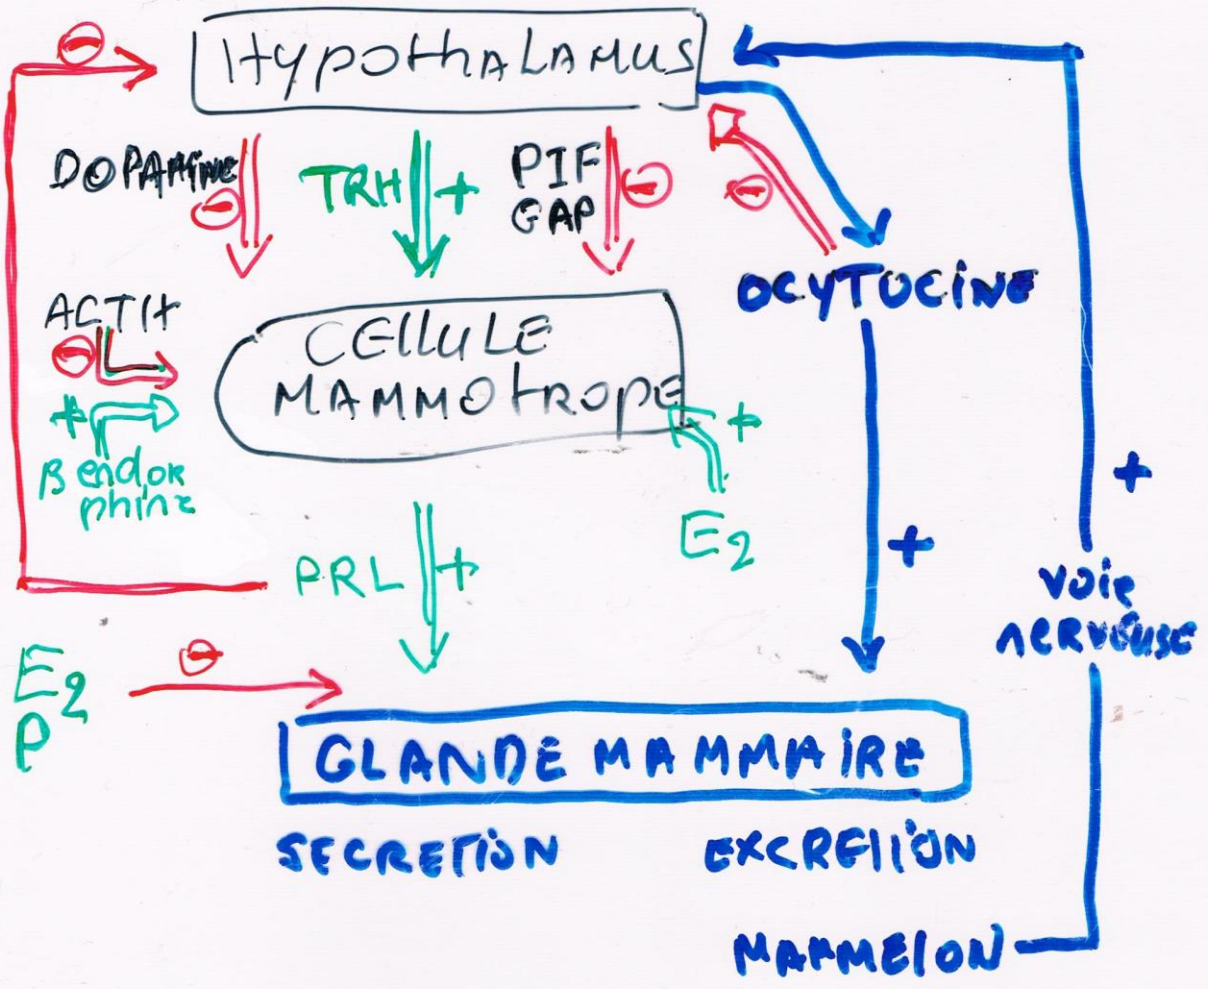 ⊖
HypothALAMUS
DOPAMINE
⊖
TRH
+
PIF
GAP
⊖
⊖
OCYTOCiNE
ACTH
⊖
+
β endor
phine
CEllULE
MAMMOtROpE
+
E2
+
PRL
+
+
voie
nerveuse
E2
P
⊖
GLANDE MAMMAiRE
SECRETiON
EXCRETiON
MAMMElON